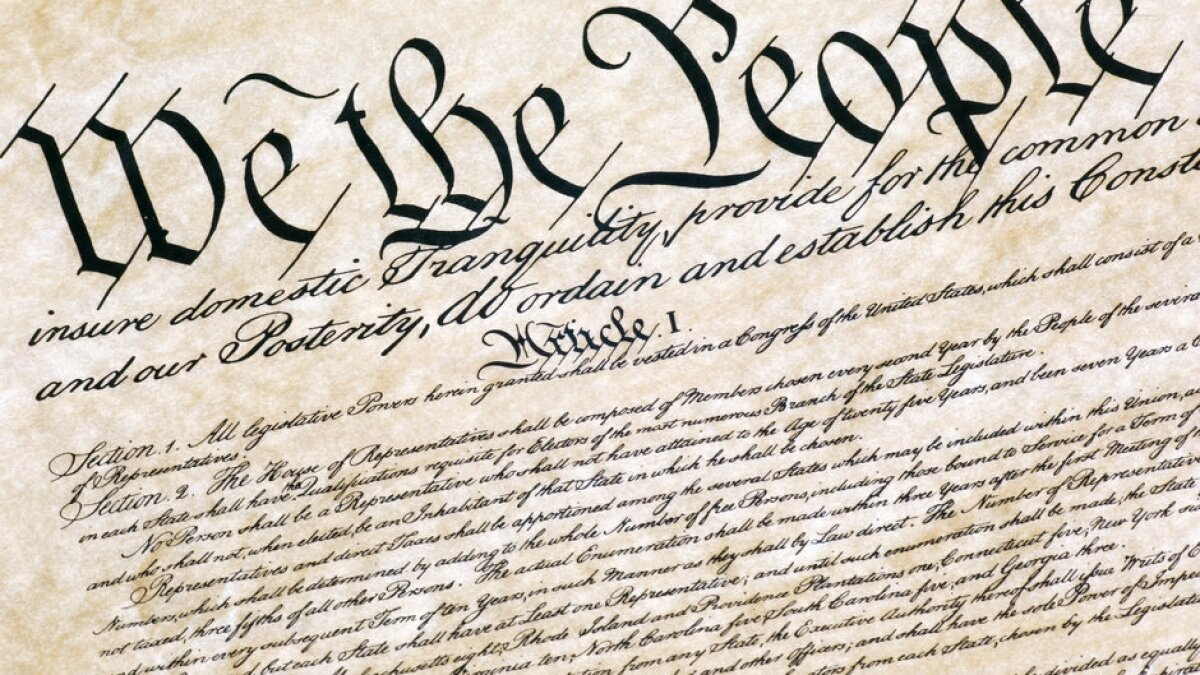 We the People
insure domestic Tranquility, provide for the common
and our Posterity, do ordain and establish this Const
Article. I.
Section. 1. All legislative Powers herein granted shall be vested in a Congress of the United States, which shall consist of a
of Representatives.
Section. 2. The House of Representatives shall be composed of Members chosen every second Year by the People of the several
in each State shall have the Qualifications requisite for Electors of the most numerous Branch of the State Legislature.
No Person shall be a Representative who shall not have attained to the Age of twenty five Years, and been seven Years a C
and who shall not, when elected, be an Inhabitant of that State in which he shall be chosen.
Representatives and direct Taxes shall be apportioned among the several States which may be included within this Union, ac
Numbers, which shall be determined by adding to the whole Number of free Persons, including those bound to Service for a Term of
not taxed, three fifths of all other Persons. The actual Enumeration shall be made within three Years after the first Meeting of
and within every subsequent Term of ten Years, in such Manner as they shall by Law direct. The Number of Representatives
but each State shall have at Least one Representative; and until such enumeration shall be made, the State
eight, Rhode Island and Providence Plantations one, Connecticut five, New York
ten, North Carolina five, South Carolina five, and Georgia three.
from any State, the Executive Authority thereof shall issue Writs of
and other Officers; and shall have the sole Power of Impe
from each State, chosen by the Legislat
divided as equally